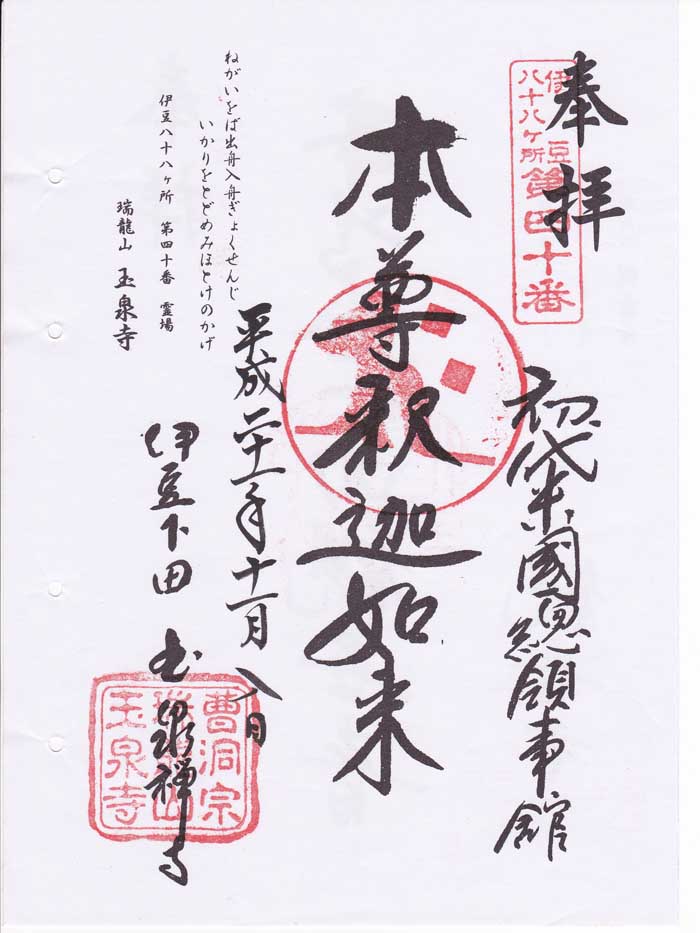 奉拝
伊豆
八十八ケ所
第四十番
初代米國總領事館
本尊釈迦如来
平成二十一年十一月八日
伊豆下田 玉泉禅寺
曹洞宗
瑞龍山
玉泉寺
ねがいをば出舟入舟ぎょくせんじ
いかりをとどめみほとけのかげ
伊豆八十八ヶ所 第四十番 霊場
瑞龍山 玉泉寺